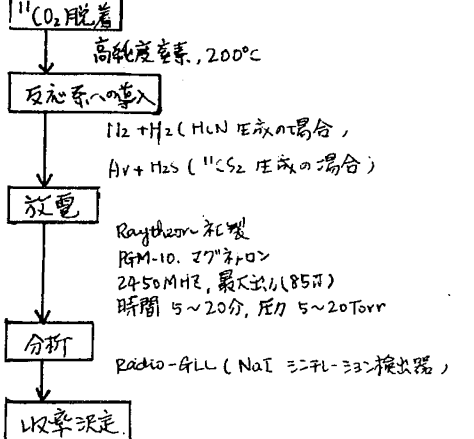 ¹¹CO₂脱着
高純度窒素, 200°C
反応系への導入
N2 + H2 ( HCN 生成の場合 )
Ar + H2S ( ¹¹CS2 生成の場合 )
放電
Raytheon 社製
PGM-10. マグネトロン
2450MHz, 最大出力 (85W)
時間 5〜20分, 圧力 5〜20Torr
分析
Radio-GLC ( NaI シンチレーション検出器 )
収率決定.